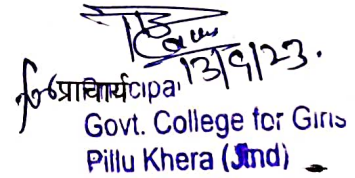 13/9/23.
प्राचार्य cipal
Govt. College for Girls
Pillu Khera (Jind)